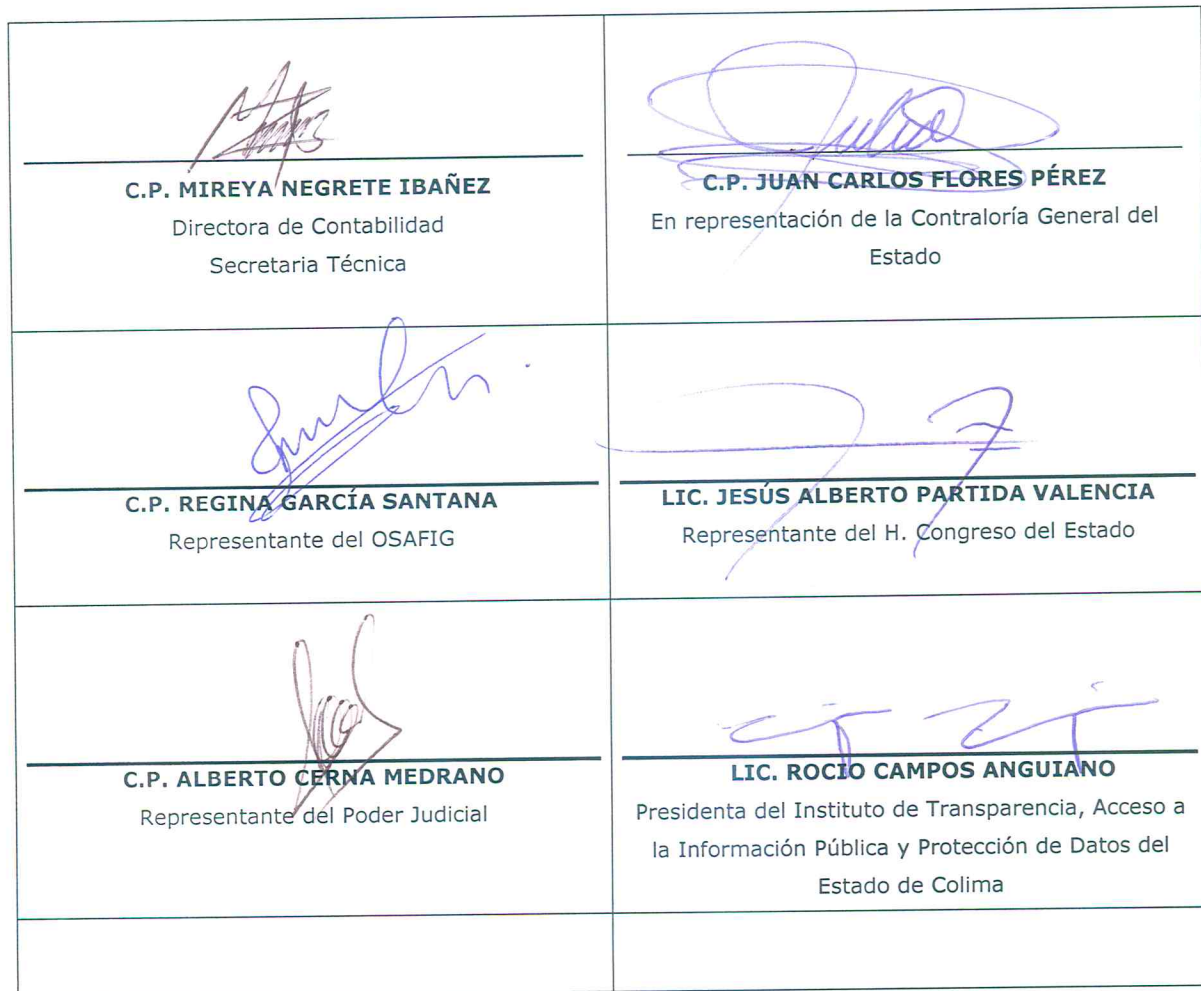 C.P. MIREYA NEGRETE IBAÑEZ
Directora de Contabilidad
Secretaria Técnica
C.P. JUAN CARLOS FLORES PÉREZ
En representación de la Contraloría General del
Estado
C.P. REGINA GARCÍA SANTANA
Representante del OSAFIG
LIC. JESÚS ALBERTO PARTIDA VALENCIA
Representante del H. Congreso del Estado
C.P. ALBERTO CERNA MEDRANO
Representante del Poder Judicial
LIC. ROCIO CAMPOS ANGUIANO
Presidenta del Instituto de Transparencia, Acceso a
la Información Pública y Protección de Datos del
Estado de Colima